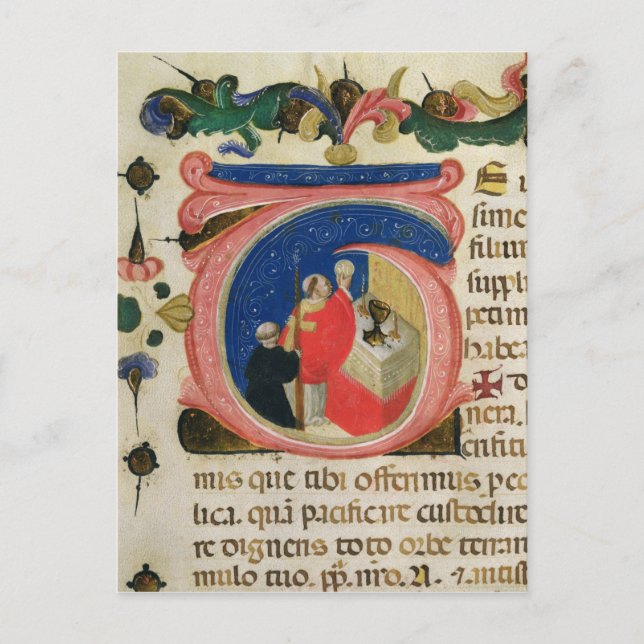 T E i
sime
filium
supp
petim
habe
✠ d
nera.
crifici
mis que tibi offerimus p ec
lica. quã pacificare custodire
re digneris toto orbe terrar
mulo tuo. p̃p. nr̃o. N. ⁊ antist